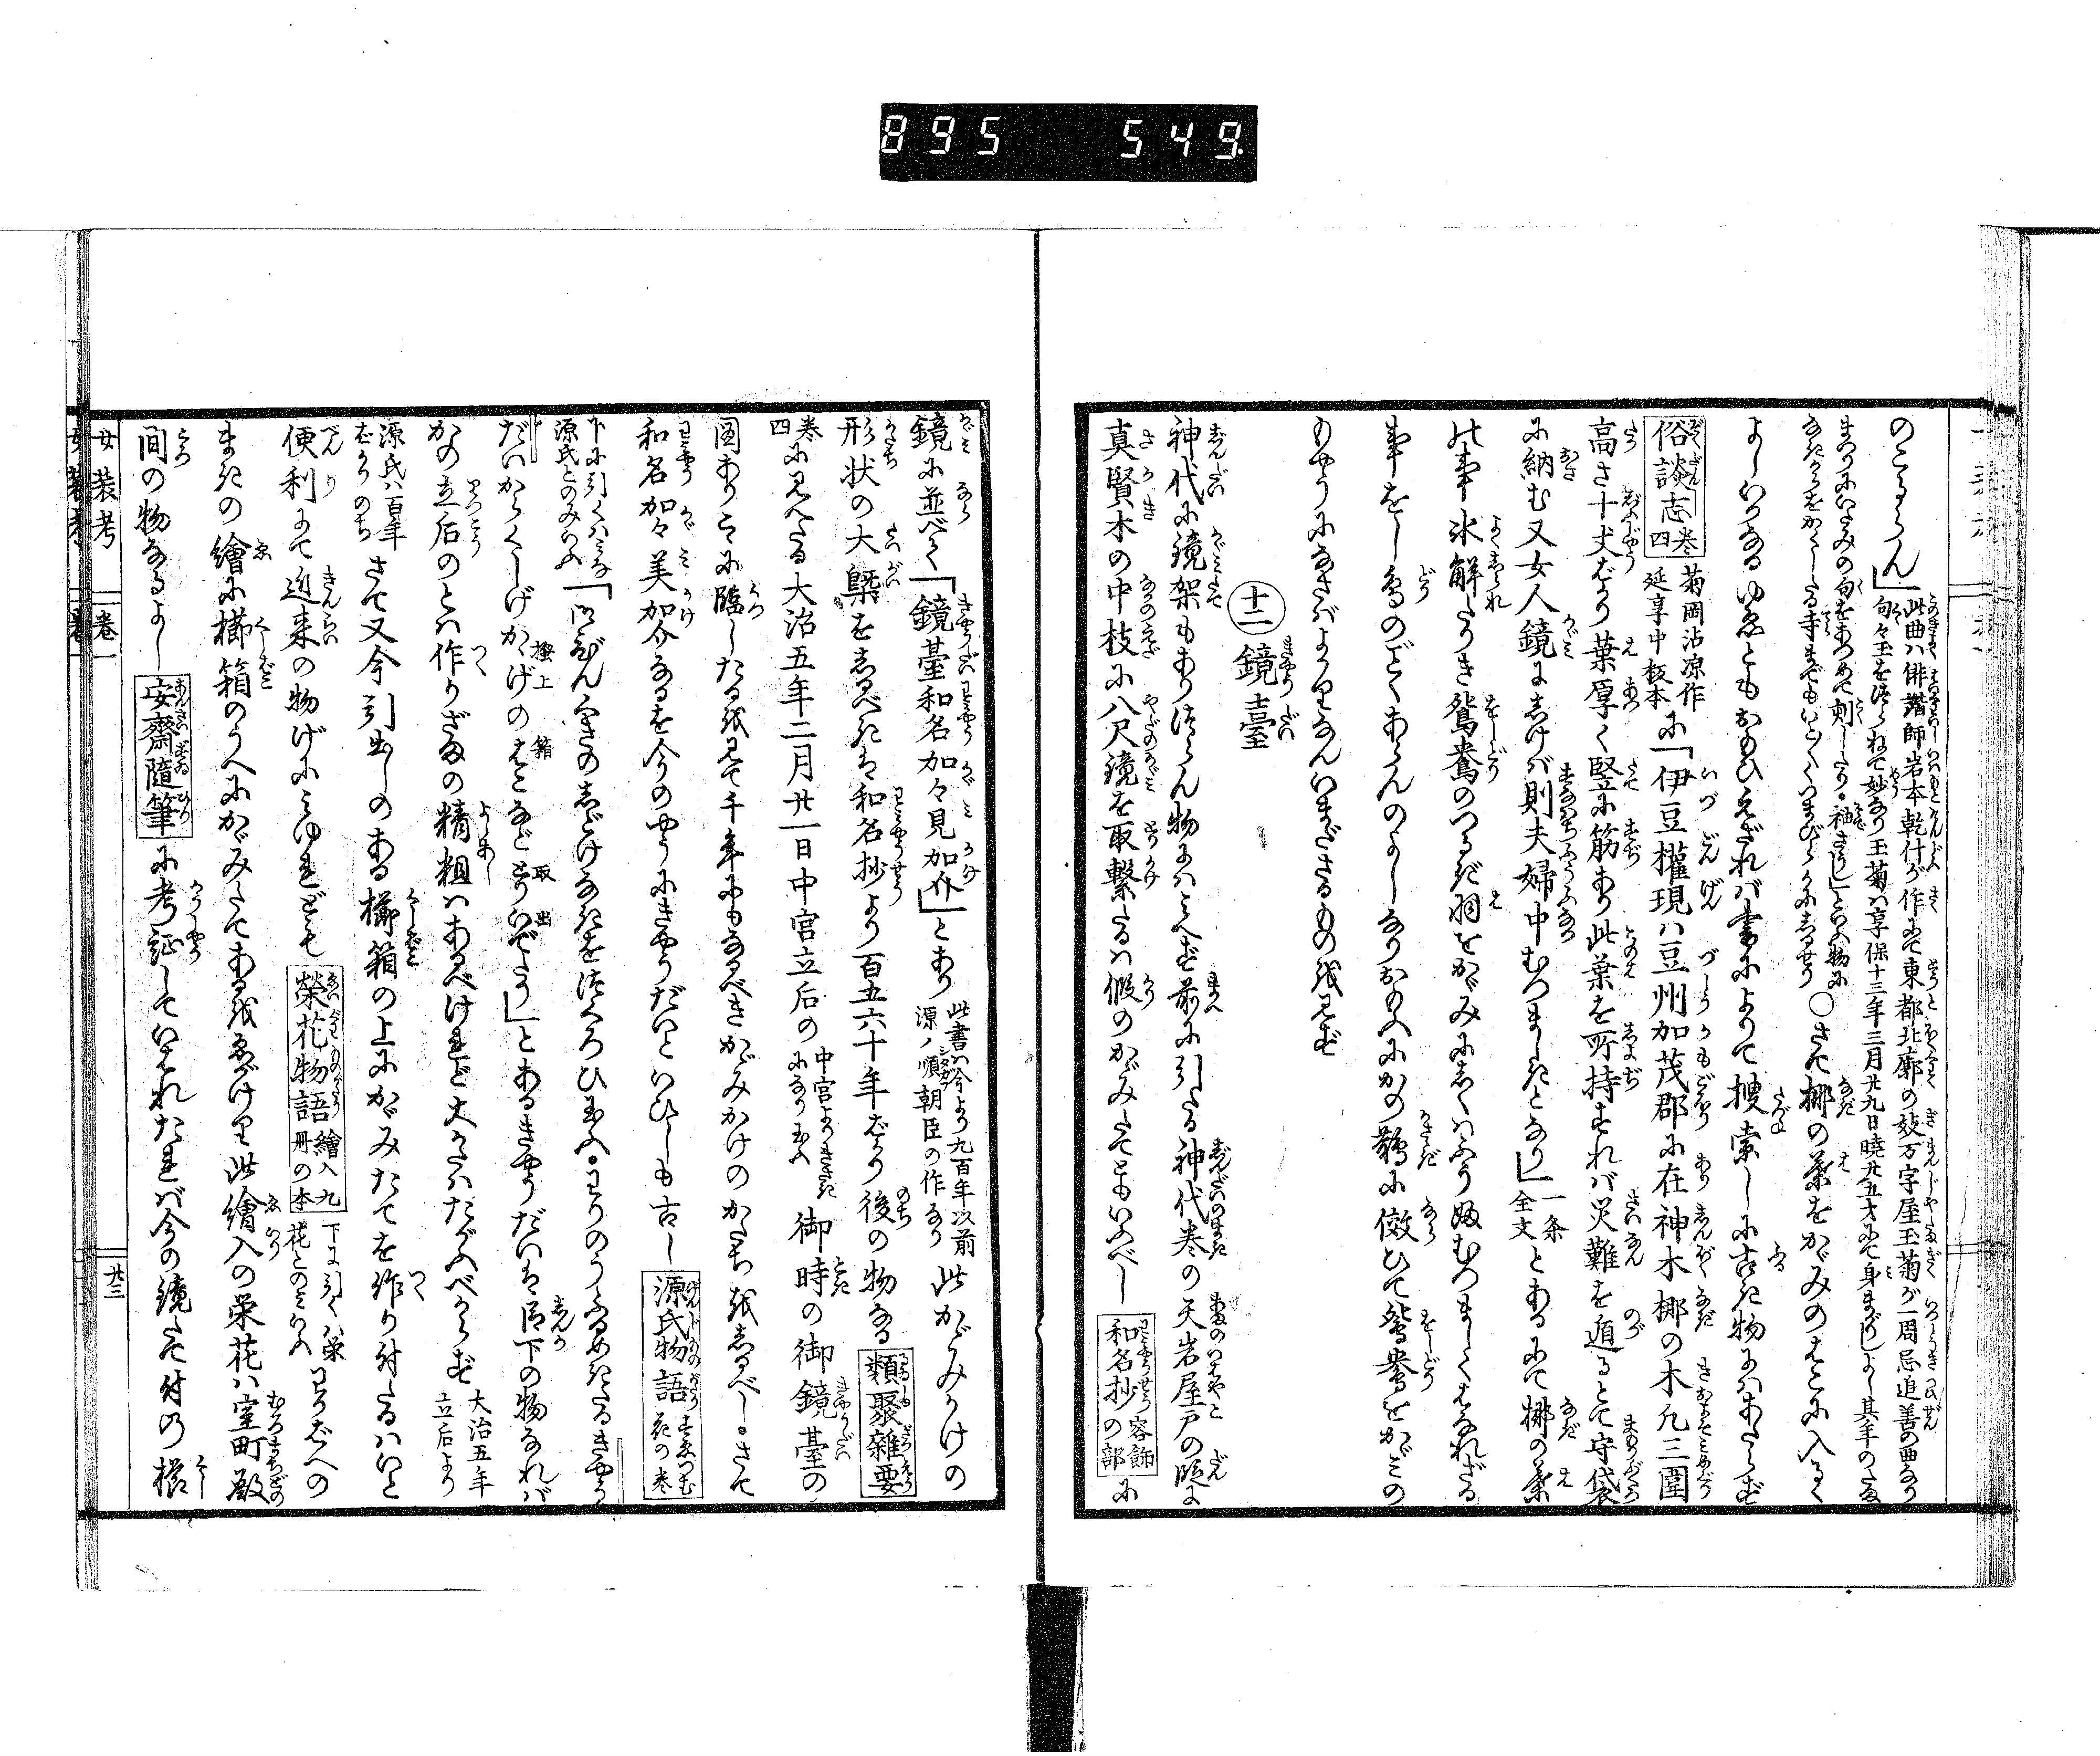 895 549
のこるらん」此曲ハ俳諧師岩本乾什が作にて東都北廓の妓万字屋玉菊が一周忌追善の曲なり
句々玉をつらねて妙なり玉菊ハ享保十三年三月廿九日暁廿五才にて身まかりしよし其年の
〇さて梛の葉をかゞみのうらに入るゝ
よしいかなるゆゑともおもひえざれバ書によりて捜索しに古き物にハあたらず
俗談志 巻四 菊岡沾凉作 延享中板本 に「伊豆權現ハ豆州加茂郡に在神木梛の木凡三圍
高さ十丈ばかり葉厚く竪に筋あり此葉を所持すれバ災難を遁るとて守袋
に納む又女人鏡にしけバ則夫婦中むつましきとなり」一条全文とあるにて梛の葉
の事氷解たりき鴛鴦のつるぎ羽をかゞみにしくハふう婦むつましくはなれざる
事をし鳥のごとくあらんのよしなりおもふにかの鵲に傚ひて鴛鴦をかゞみの
もやうになさバよかりなんいまださるもの を見ず
十二 鏡臺
神代に鏡架もありつらん物にハ見へず前に引たる神代巻の天岩屋戸の段に
真賢木の中枝に八尺鏡を取繋たるハ假のかゞみたてともいふべし 和名抄 容飾の部 に
鏡に並べて「鏡臺和名加々見加介」とあり 此書ハ今より九百年以前 源ノ順朝臣の作なり 此かゞみかけの
形状の大槩をしるべきは和名抄より百五六十年ばかり後の物なる 類聚雜要
巻四に見へたる大治五年二月廿一日中宮立后の 中宮よりきさきになり玉ふ 御時の御鏡臺の
図ありこゝに臨したるを見て千年にもなるべきかゞみかけのかたちをしるべし。さて
和名加々美加介なるを今のやうにきやうだいといひしも古し 源氏物語 すゑつむ花の巻
下に引くハみな源氏とのみいふ「御びんぐきのしどけなきをつくろひ玉ふ。わりのうふるめきたるきやう
だいからくしげかゝげのはこなどとりいでたり」とあるきやうだいは臣下の物なれバ
かの立后のとハ作りざまの精粗ハあるべけれど大かたハたがふべからず 大治五年立后より
源氏ハ百年ばかりのち さて又今引出しのある櫛箱の上にかゞみたてを作り付たるハいと
便利にて近来の物げにみゆれども 榮花物語 繪入九冊の本 下に引くハ栄花とのミいふ わかばへの
まきの繪に櫛箱のうへにかゞみたてあるをゑがけり此繪入の栄花ハ室町殿
間の物なるよし 安齋隨筆 に考証していはれたれバ今の鏡たて付の櫛
女装考 巻一 廿三